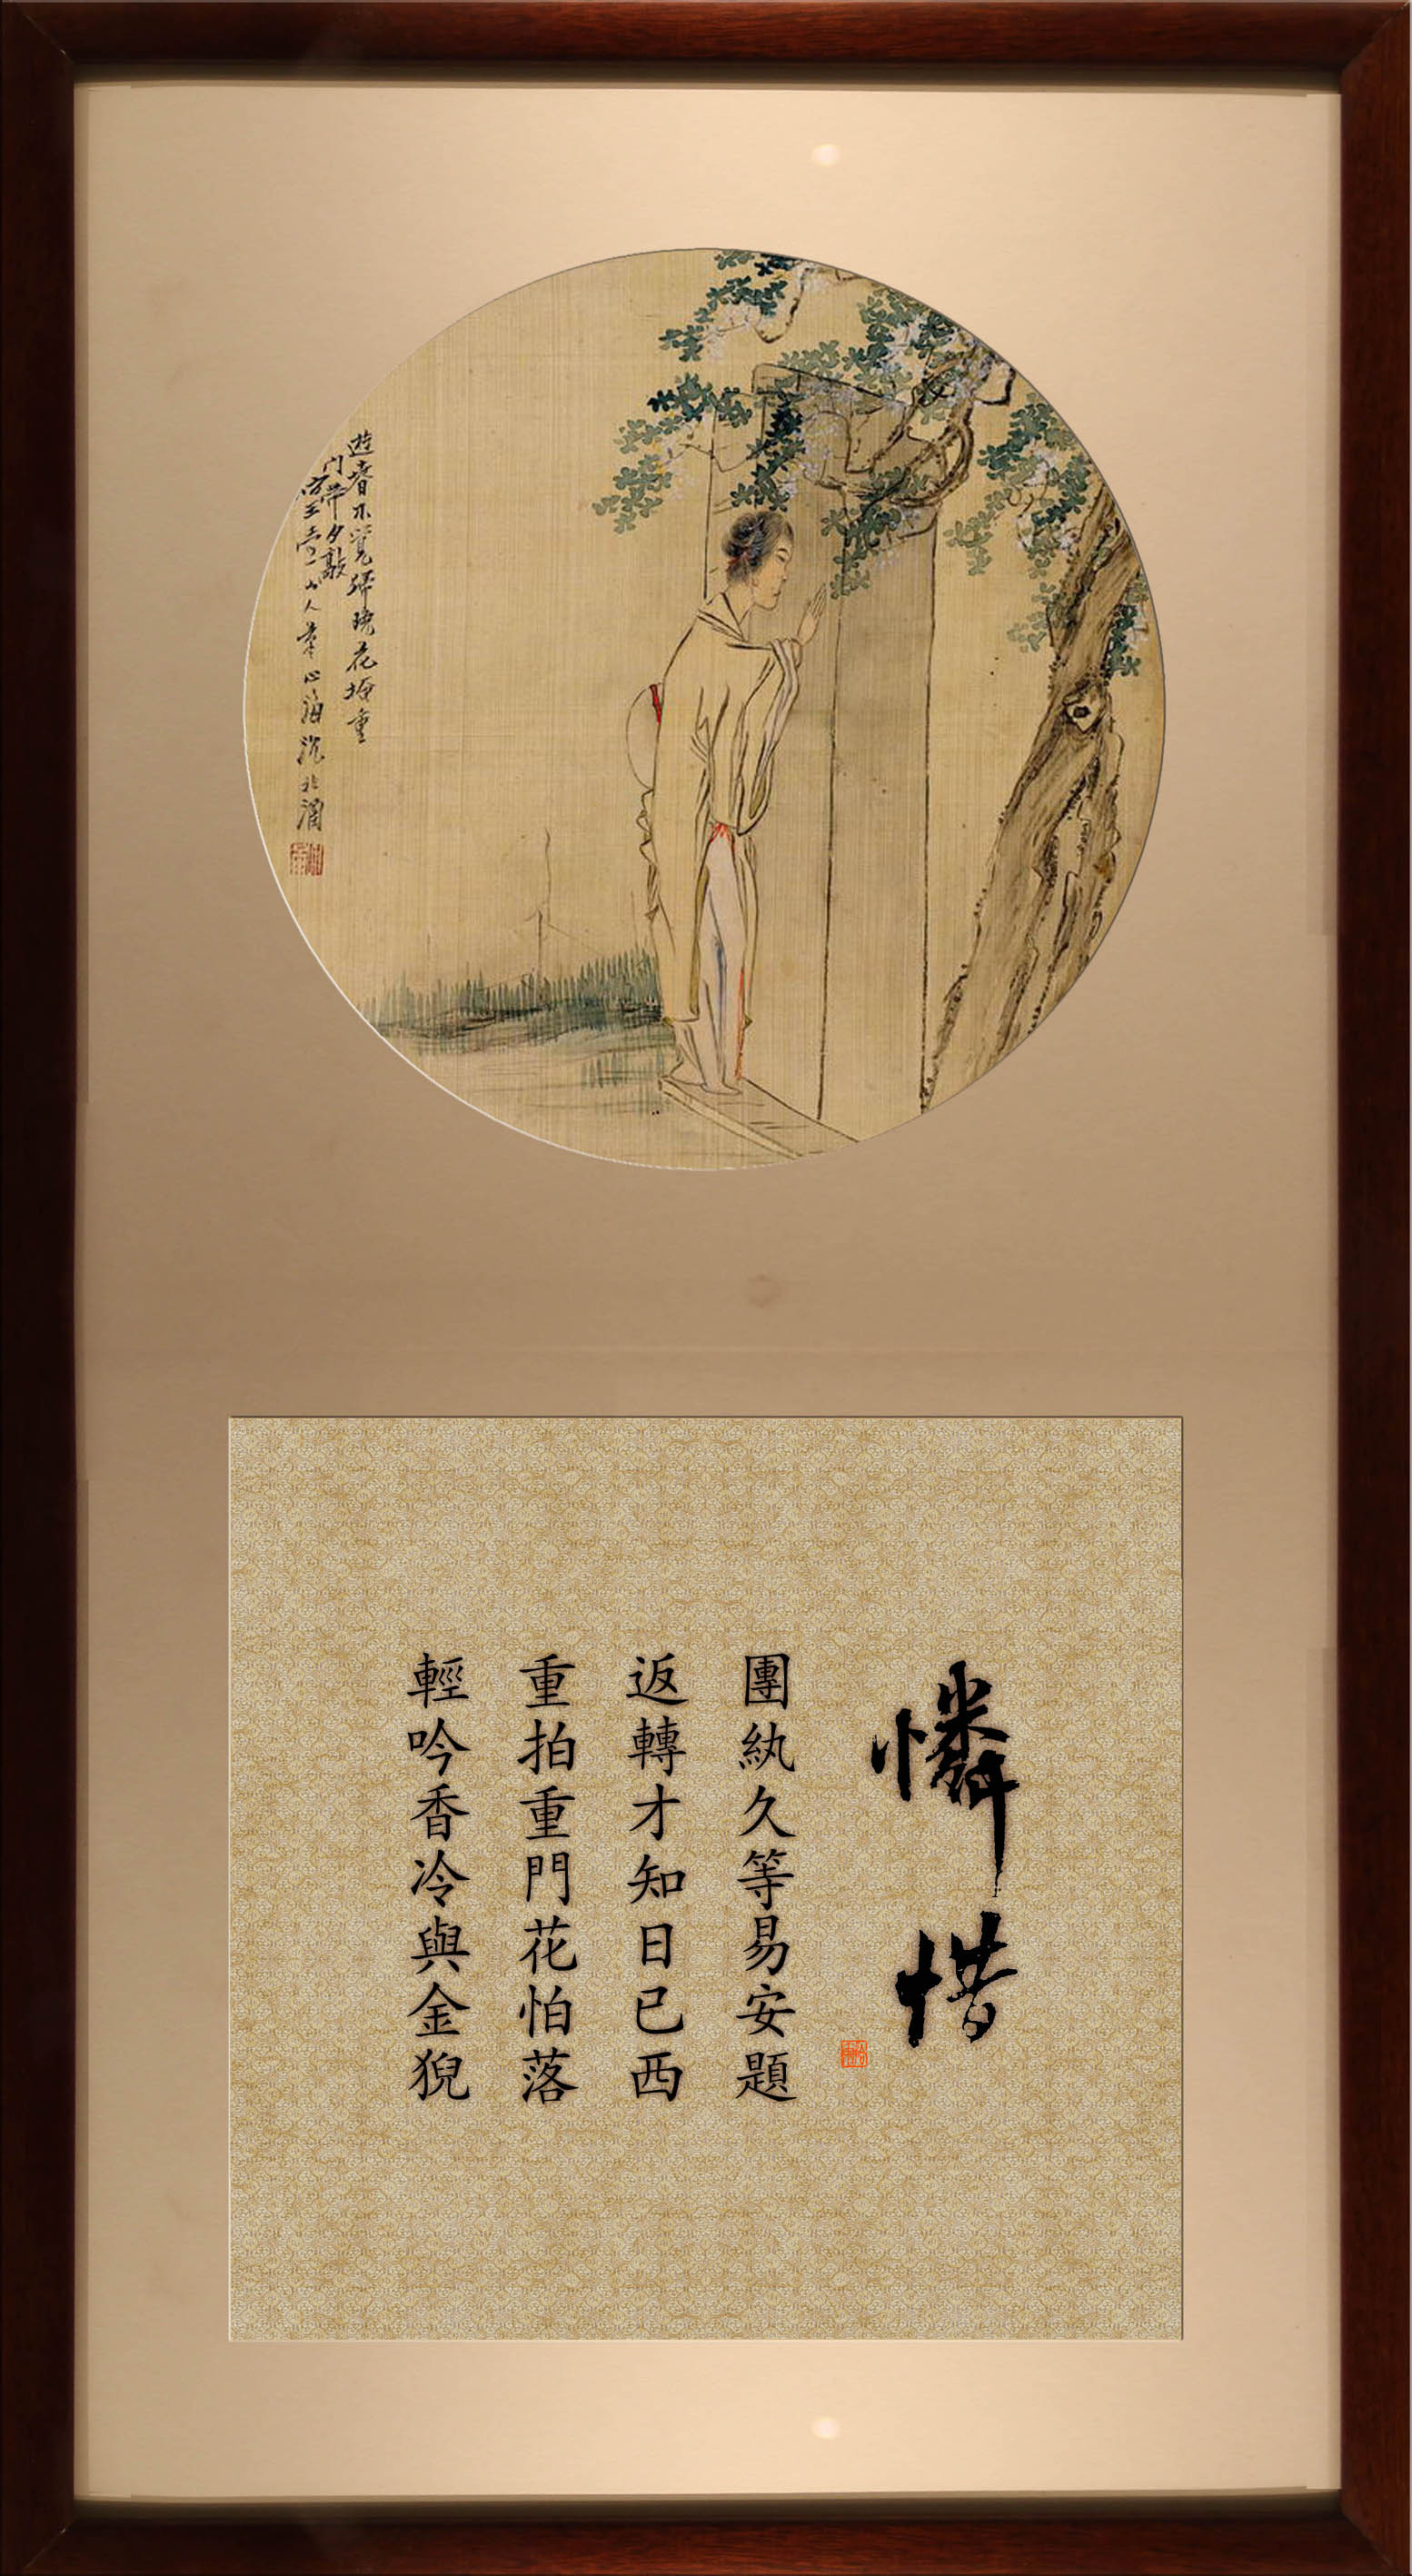 遊春不覺歸晚花掩重
門帶夕敲
仿玉壺山人筆心海沈兆涵
憐惜
團紈久等易安題
返轉才知日已西
重拍重門花怕落
輕吟香冷與金猊